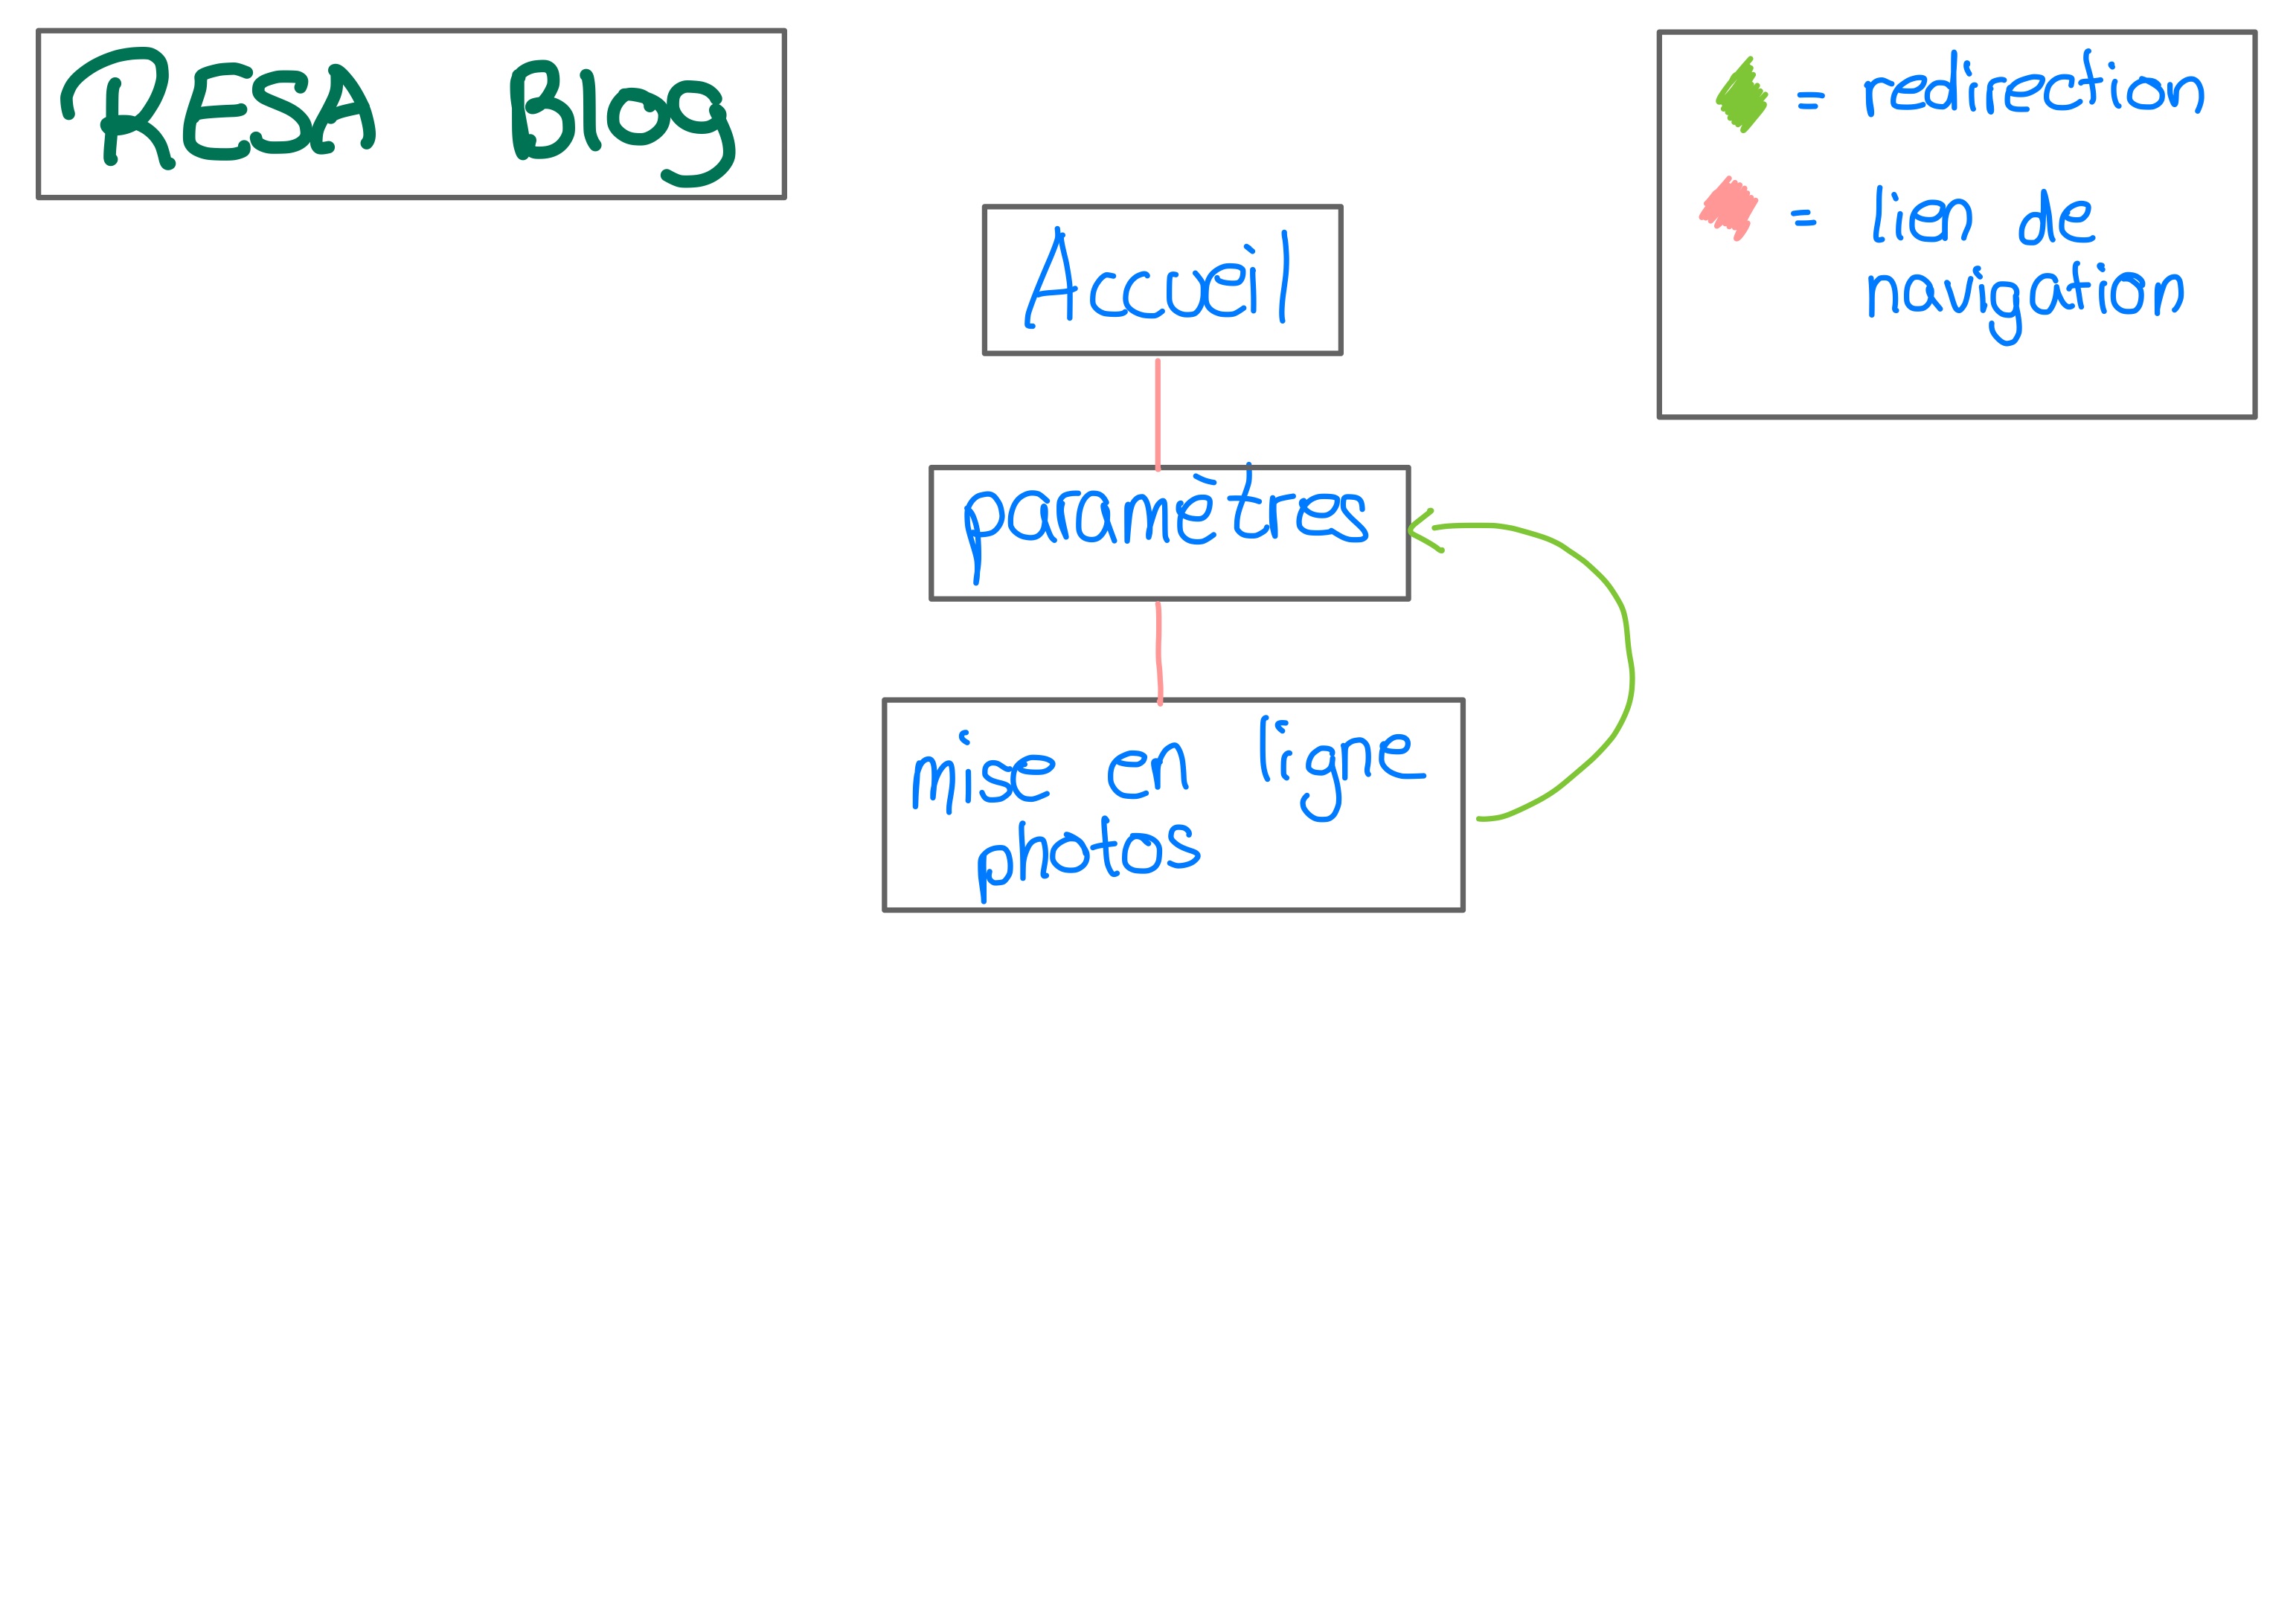 RESA Blog
= redirection
= lien de
navigation
Accueil
paramètres
mise en ligne
photos